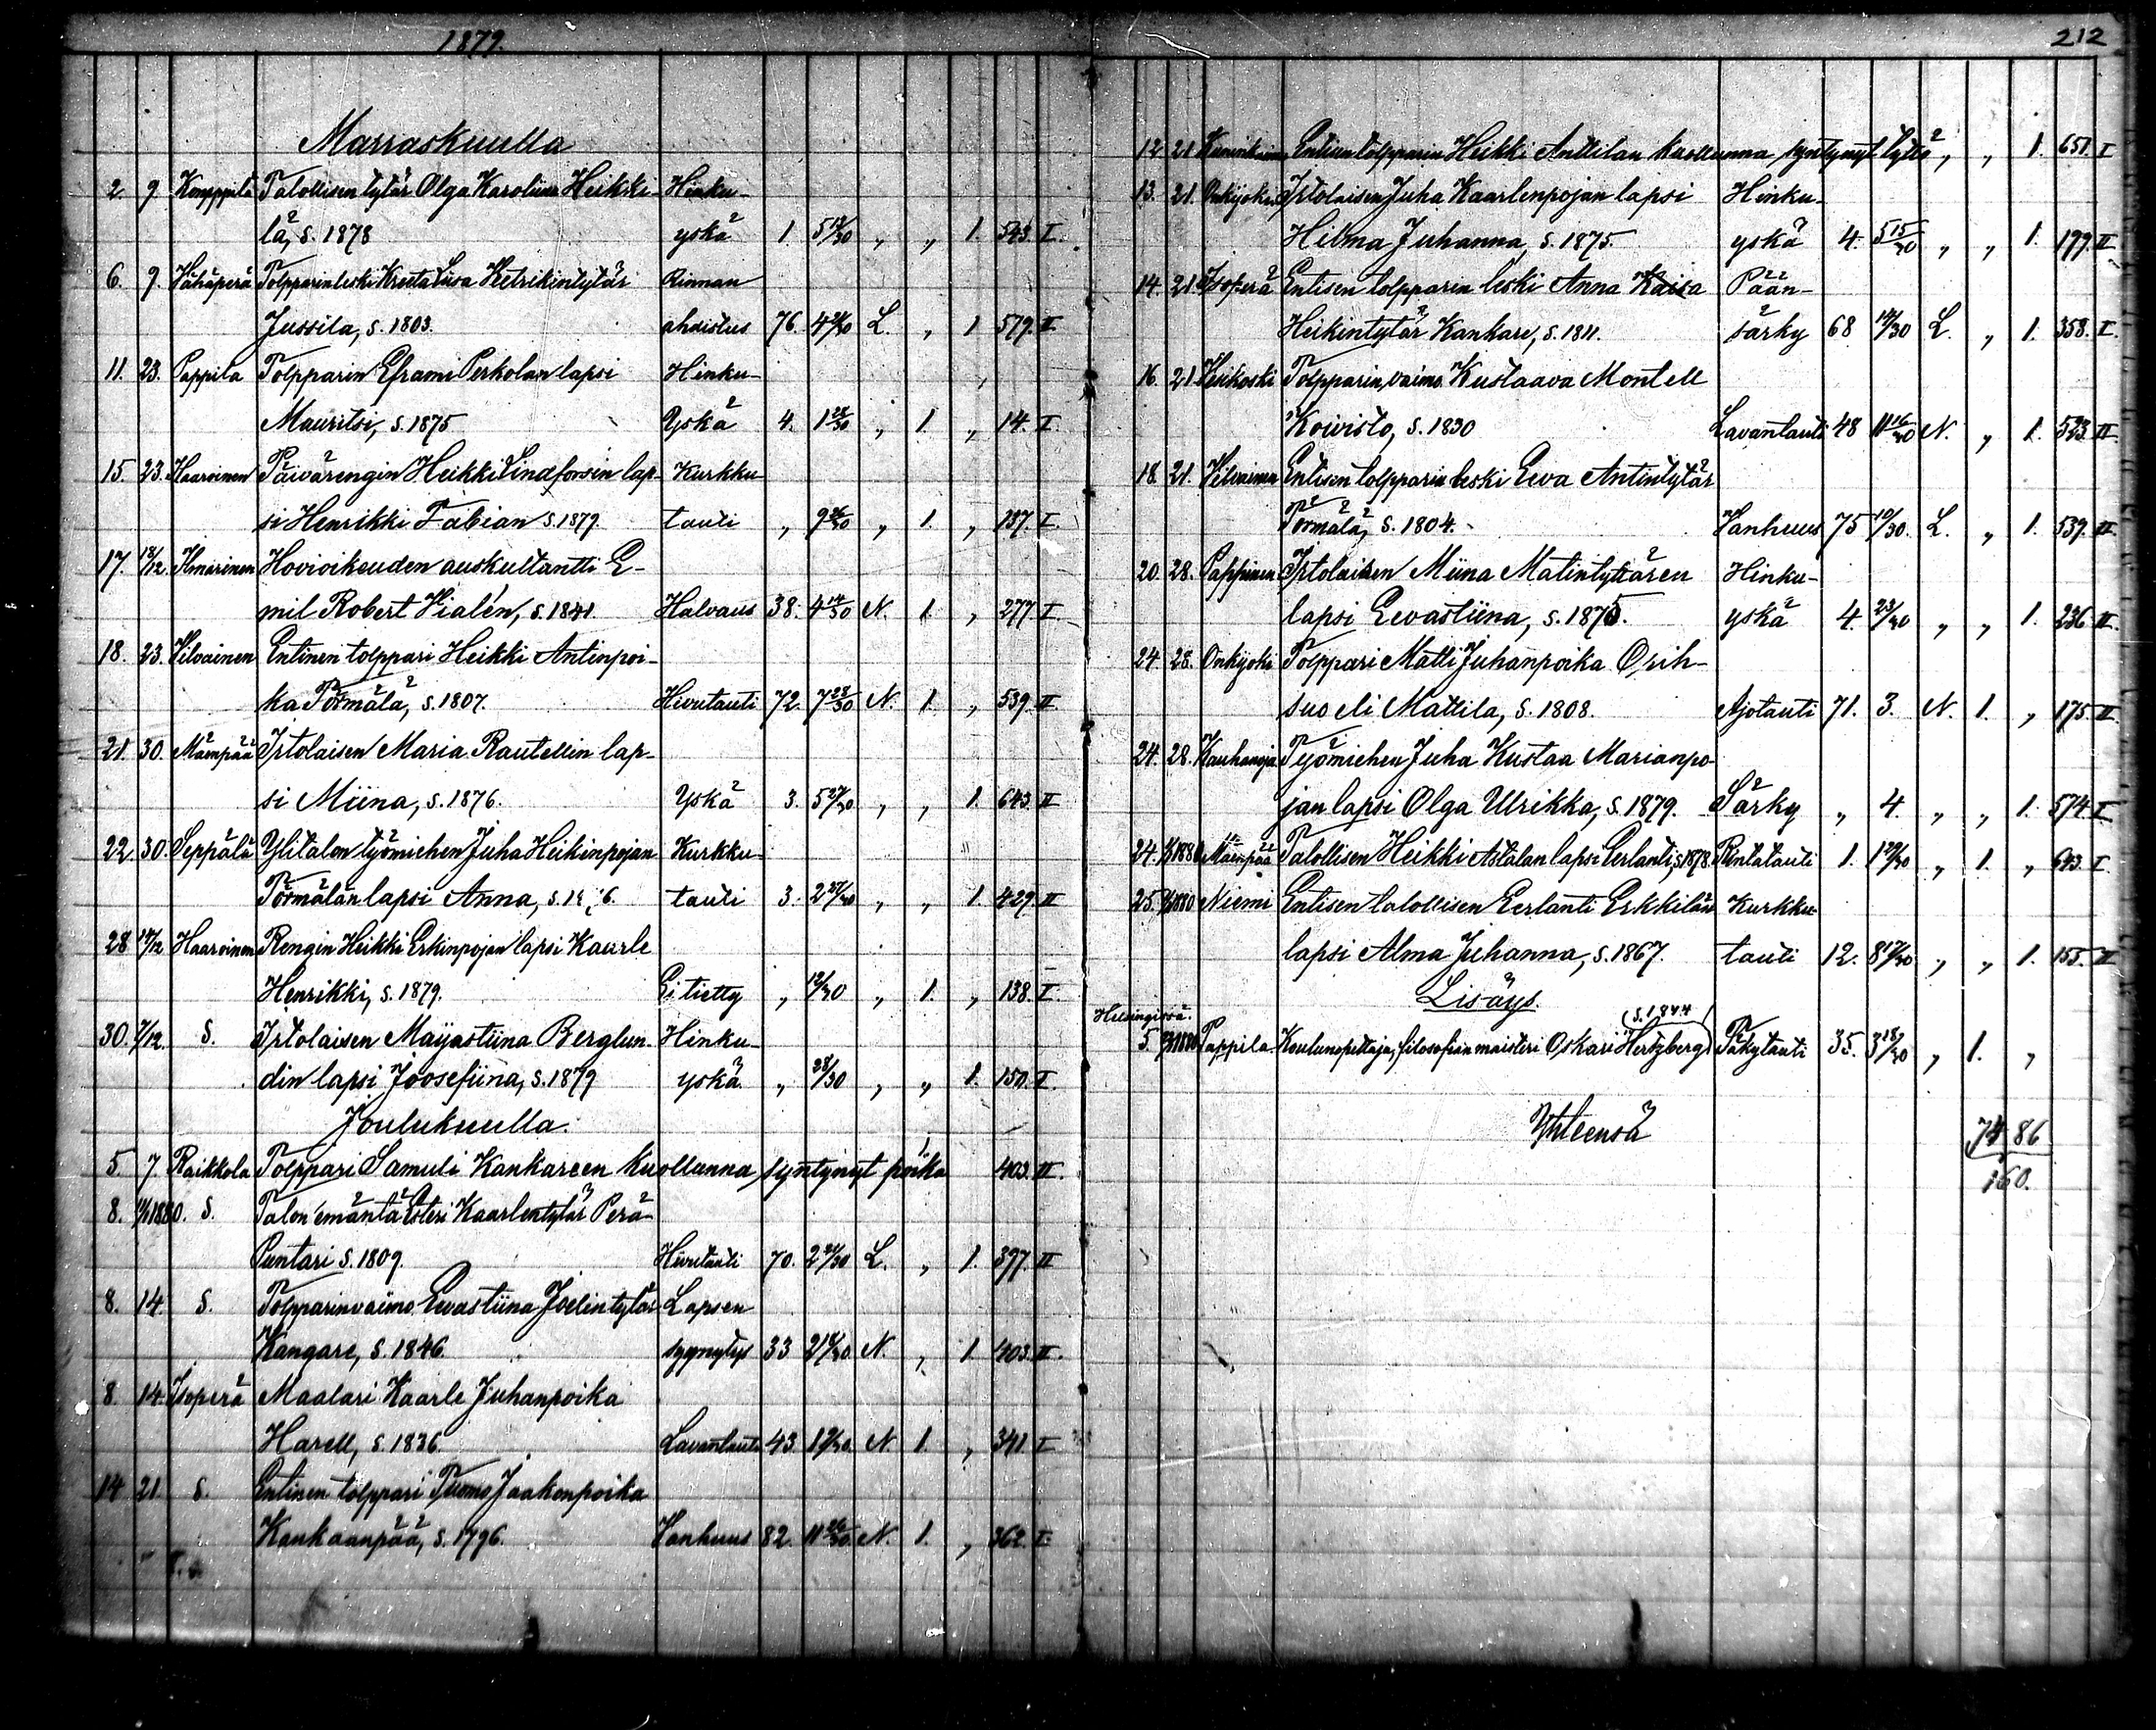 1879.
212
Marraskuulla
2. 9. Komppila Talollisen tytär Olga Karoliina Heikki- Hinku-
lä, s. 1878 yskä 1. 5 12/30 „ „ 1. 543. I.
6. 9. Vähäperä Tolpparin leski Kreeta Liisa Hetrikintytär Rinnan
Jussila, s. 1803. ahdistus 76. L. „ 1 579. II.
11. 23. Pappila Tolpparin Eframi Perkolan lapsi Hinku-
Mauritsi, s. 1875 Yskä 4. 1 28/30 „ 1 „ 14. I.
15. 23. Haaroinen Päivärengin Heikki Lindforsin lap- Kurkku-
si Henrikki Fabian s. 1879. tauti „ 9 „ 1. „ 137. I.
17. 18/12 Ilmarinen Hovioikeuden auskultantti E-
mil Robert Vialén, s. 1841. Halvaus 38. 4 14/30 N. 1. „ 277. I
18. 23. Vilvainen Entinen tolppari Heikki Antinpoi-
ka Törmälä, s. 1807. Hivutauti 72. 7 23/30 N. 1. „ 539. II
21. 30. Mäenpää Irtolaisen Maria Rautellin lap-
si Miina, s. 1876. Yskä 3. 5 27/30 „ „ 1. 643. II
22 30. Seppälä Ylitalon työmiehen Juha Heikinpojan Kurkku-
Törmälän lapsi Anna, s. tauti 3. 2 27/30 „ „ 1. 429. II
28 14/12 Haaroinen Rengin Heikki Erkinpojan lapsi Kaarle
Henrikki, s. 1879. Ei tietty „ 12/30 „ 1. „ 138. I.
30. 7/12. S. Irtolaisen Mayastiina Berglun- Hinku-
din lapsi Joosefiina, s. 1879 yskä „ 28/30 „ „ 1. 150. I.
Joulukuulla.
5 7. Raikkola Tolppari Samuli Kankareen kuollunna syntynyt poika 1 403. II.
8. S. Talon emäntä Esteri Kaarlentytär Perä-
Puntari s. 1809. Hivutauti 70. L. „ 1. 397. II
8. 14. S. Tolpparinvaimo Eevastiina Joelintytär Lapsen
Kangare, s. 1846. synnytys 33 2 18/30 N. „ 1. 403. II.
8. 14. Isoperä Maalari Kaarle Juhanpoika
Harell, s. 1836. Lavantauti 43. N 1. „ 341. I
14 21. S. Entinen tolppari Tuomo Jaakonpoika
Kankaanpää, s. 1796. Vanhuus 82. 11 26/30 N. 1. „ 362. I.
12 21. Entisen tolpparin Heikki Anttilan kuollunna syntynyt tyttö „ „ 1. 651. I
13. 21. Onkijoki Irtolaisen Juha Kaarlenpojan lapsi Hinku-
Hilma Juhanna, s. 1875. yskä 4. 5 15/30 „ „ 1. 199. II
14. 21 Isoperä Entisen tolpparin leski Anna Kaisa Pään-
Heikintytär Kankare, s. 1811. särky 68 14/30 L. „ 1. 358. I.
16. 21 Vesikoski Tolpparin, vaimo Kustaava Montell
Koivisto, s. 1830 Lavantauti 48 11 16/30 N. „ 1. 523. II
18. 21. Vilvainen Entisen tolpparin leski Eeva Antintytär
Törmälä, s. 1804. Vanhuus 75 10/30. L. „ 1. 539. II.
20. 28. Pappinen Irtolaisen Miina Matintyttären Hinku-
lapsi Eevastiina, s. 1875. yskä 4. 23/30 „ „ 1. 236 II.
24. 28. Onkijoki Tolppari Matti Juhanpoika Orih-
suo eli Mattila, s. 1808. Ajotauti 71. 3. N. 1. „ 175. II.
24. 28. Kauhanoja Työmiehen Juha Kustaa Marianpo-
jan lapsi Olga Ulrikka, s. 1879. Särky „ 4. „ „ 1. 574. I
24. Mäenpää Talollisen Heikki Astalan lapsi Eerlanti, s. 1878. Rintatauti 1. 1 29/30 „ 1. „ 643. I.
25. Niemi Entisen talollisen Eerlanti Erkkilän Kurkku-
lapsi Alma Juhanna, s. 1867. tauti 12. 8 17/30 „ „ 1. 155. II
Lisäys.
Helsingissä. (s. 1844
5. Pappila Koulunopettaja, filosofian maisteri Oskari Hertzberg) Täkytauti 35. 3 18/30 „ 1. „
Yhteensä 74 86
160.